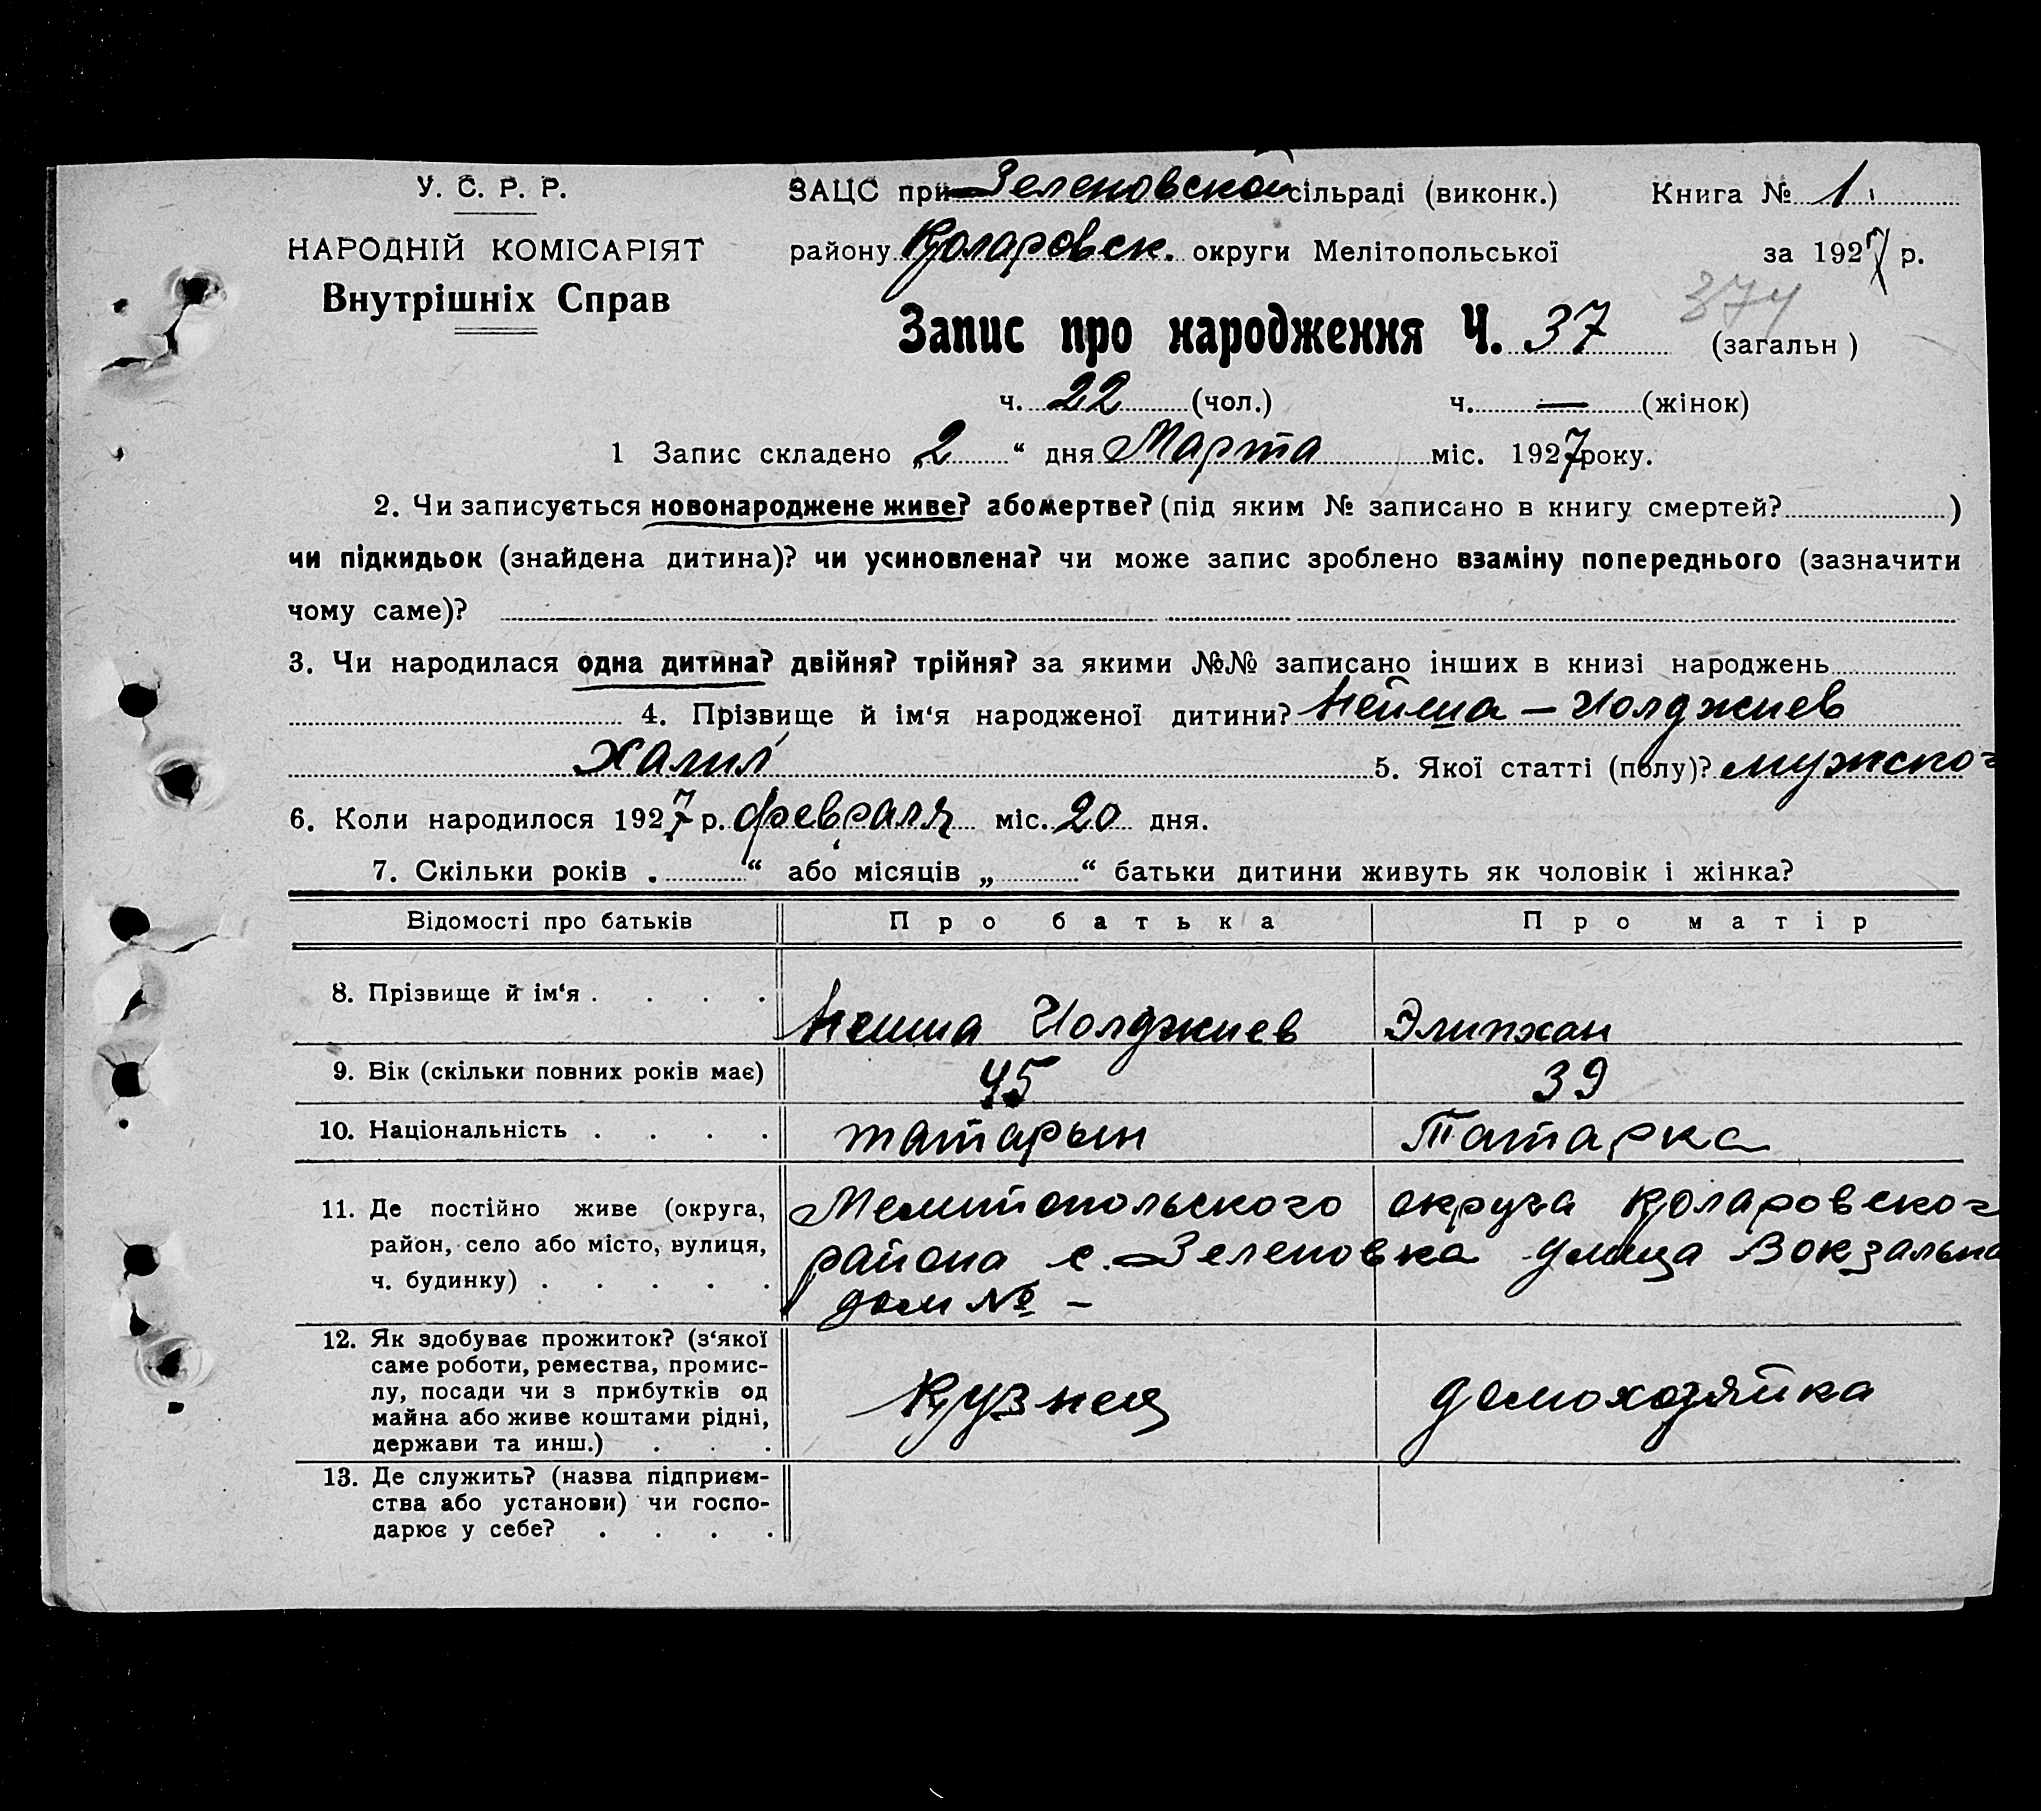 У. С. Р. Р.
НАРОДНІЙ КОМІСАРІЯТ
Внутрішніх Справ
ЗАЦС при Зеленовской сільраді (виконк.) Книга № 1
району Коларовск. округи Мелітопольської за 1927 р.
374
Запис про народження Ч. 37 (загальн)
ч. 22 (чол.) ч. — (жінок)
1 Запис складено „2“ дня Марта міс. 1927 року.
2. Чи записується новонароджене живе? або мертве? (під яким № записано в книгу смертей? )
чи підкидьок (знайдена дитина)? чи усиновлена? чи може запис зроблено взаміну попереднього (зазначити
чому саме)?
3. Чи народилася одна дитина? двійня? трійня? за якими №№ записано інших в книзі народжень
4. Прізвище й ім‘я народженої дитини? — Иолджиев
Халил 5. Якої статті (полу)? мужског
6. Коли народилося 1927 р. февраля міс. 20 дня.
7. Скільки років . “ або місяців „ “ батьки дитини живуть як чоловік і жінка?
Відомості про батьків Про батька Про матір
8. Прізвище й ім‘я . . . . Иолджиев Элипхан
9. Вік (скільки повних років має) 45 39
10. Національність . . . . татарын Татарка
11. Де постійно живе (округа, Мелитопольского округа Коларовског
район, село або місто, вулиця, района с. Зеленовка улица Вокзальна
ч. будинку) . . . . . дом № –
12. Як здобуває прожиток? (з‘якої
саме роботи, ремества, промис-
лу, посади чи з прибутків од Кузнец домохозяйка
майна або живе коштами рідні,
держави та инш.) . . .
13. Де служить? (назва підприєм-
ства або установи) чи госпо-
дарює у себе? . . . .